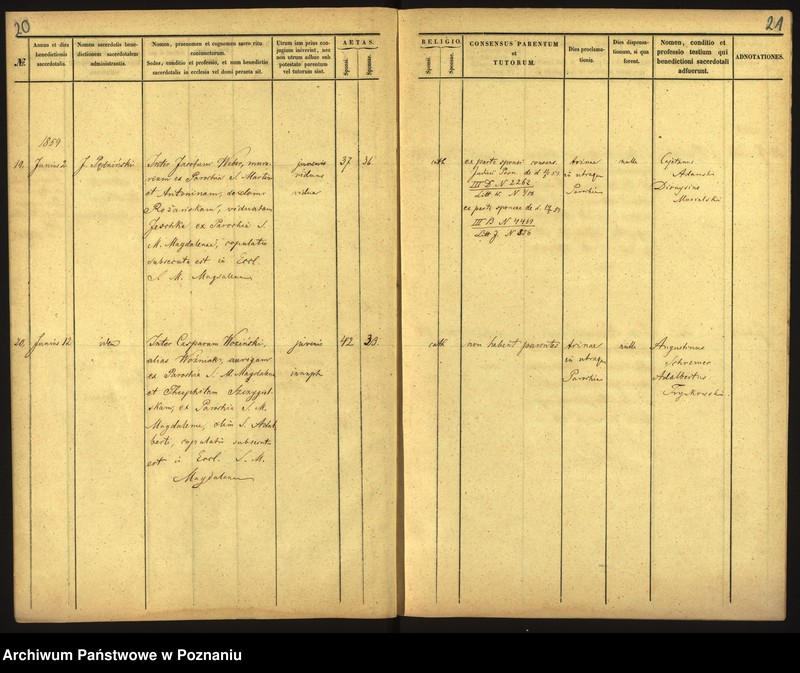 20
№
Annus et dies
benedictionis
sacerdotalis.
Nomen sacerdotis bene-
dictionem sacerdotalem
administrantis.
Nomen, praenomen et cognomen sacro ritu
coniunctorum.
Sedes, conditio et professio, et num benedictio
sacerdotalis in ecclesia vel domi peracta sit.
Utrum iam prius con-
jugium iniverint, nec
non utrum adhuc sub
potestate parentum
vel tutorum sint.
AETAS.
Sponsi.
Sponsae.
1859
19. Junius 2
Inter Jacobum Weber, mura-
rium ex Parochia S. Martini
et Antoninam, de domo
Rożańskam, viduatam
Jeschke ex Parochia S.
M. Magdalenae, copulatio
subsecuta est in Eccl.
S. M. Magdalenae
juvenis
viduus
vidua
37
36
20. Junius 12
idem
Inter Casparum Woziński,
alias Woźniak, aurigam
ex Parochia S. M. Magdalenae
et Theophilam
skam, ex Parochia S. M.
Magdalenae, olim S. Adal
berti, copulatio subsecuta
est in Eccl. S. M.
Magdalenae
juvenis
innupta
42
33
21
RELIGIO.
Sponsi.
Sponsae.
CONSENSUS PARENTUM
et
TUTORUM.
Dies proclama-
tionis.
Dies dispensa-
tionum, si qua
forent.
Nomen, conditio et
professio testium qui
benedictioni sacerdotali
adfuerunt.
ADNOTATIONES.
cath.
ex parte sponsi consens.
III D N 2262
ex parte sponsae de d.
III B N 4419
Litt J. N 826
Trinae
in utraque
Parochia
nulla
Cajetanus
Adamski
Dionysius
Musialski
cath.
non habent parentes
Trinae
in utraque
Parochia
nulla
Augustinus
Schremer
Adalbertus
Archiwum Państwowe w Poznaniu